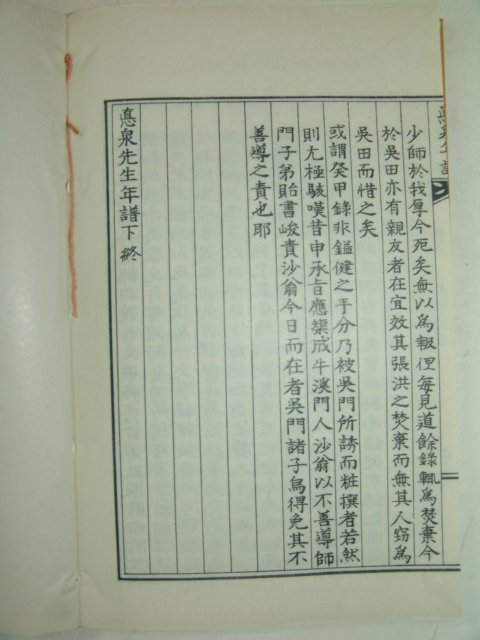 少師於我厚今死矣無以爲報但每見道餘錄輒爲焚棄今
於吳田亦有親友者在宜效其張洪之焚棄而無其人竊爲
吳田而惜之矣
或謂癸甲錄非鎰健之手分乃被吳門所誘而粧撰者若然
則尤極駭嘆昔申承旨應榘成牛溪門人沙翁以不善導師
門子弟貽書峻責沙翁今日而在者吳門諸子烏得免其不
善導之責也耶
惪泉先生年譜下 終